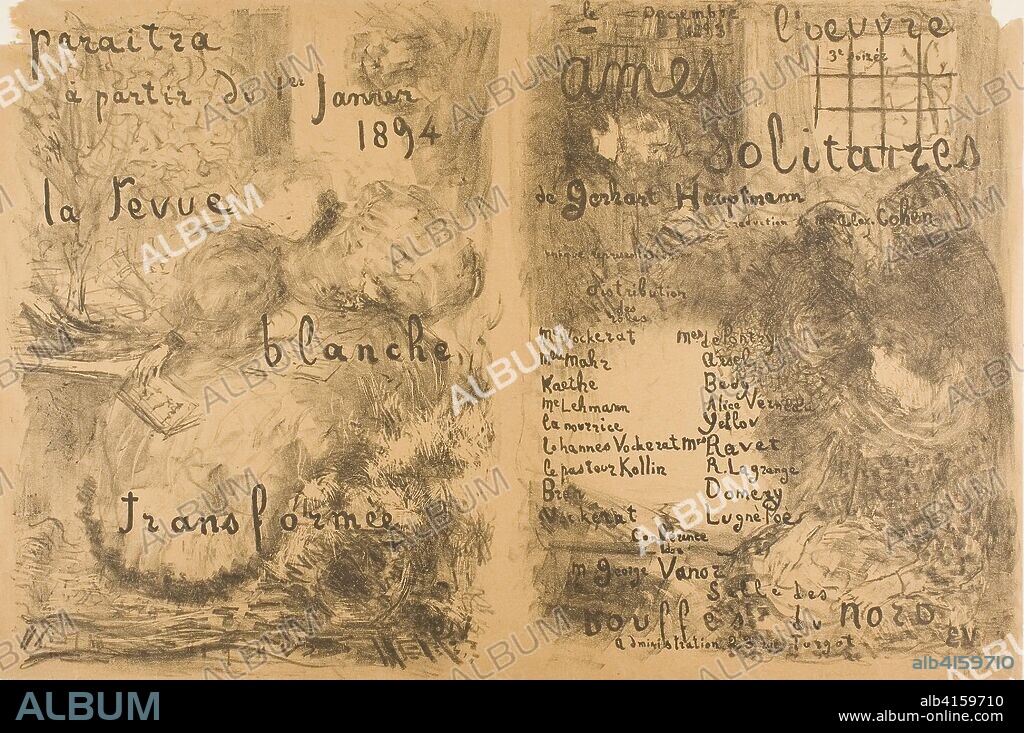 paraitra
à partir du 1er Janvier
1894
la revue
blanche
transformée
le Decembre
1893
l'oeuvre
3e soirée
ames
solitaires
de Gerhart Hauptmann
traduction de Mr Alex Cohen
unique représentation
distribution
des
Me Vockerat Mmes de Pontry
Mahr
Kaethe Bady
Me Lehmann Alice Verneuil
la nourrice Yellov
Johannes Vockerat Mrs Ravet
le pasteur Kollin R. Lagrange
Domeny
Vockerat Lugné Poe
Conférence
de
Mr george Vanor
Salle des
Bouffes du Nord
Administration 23 rue Turgot
EV
ALBUM
alb4159710
ALBUM
alb4159710
www.album-online.com